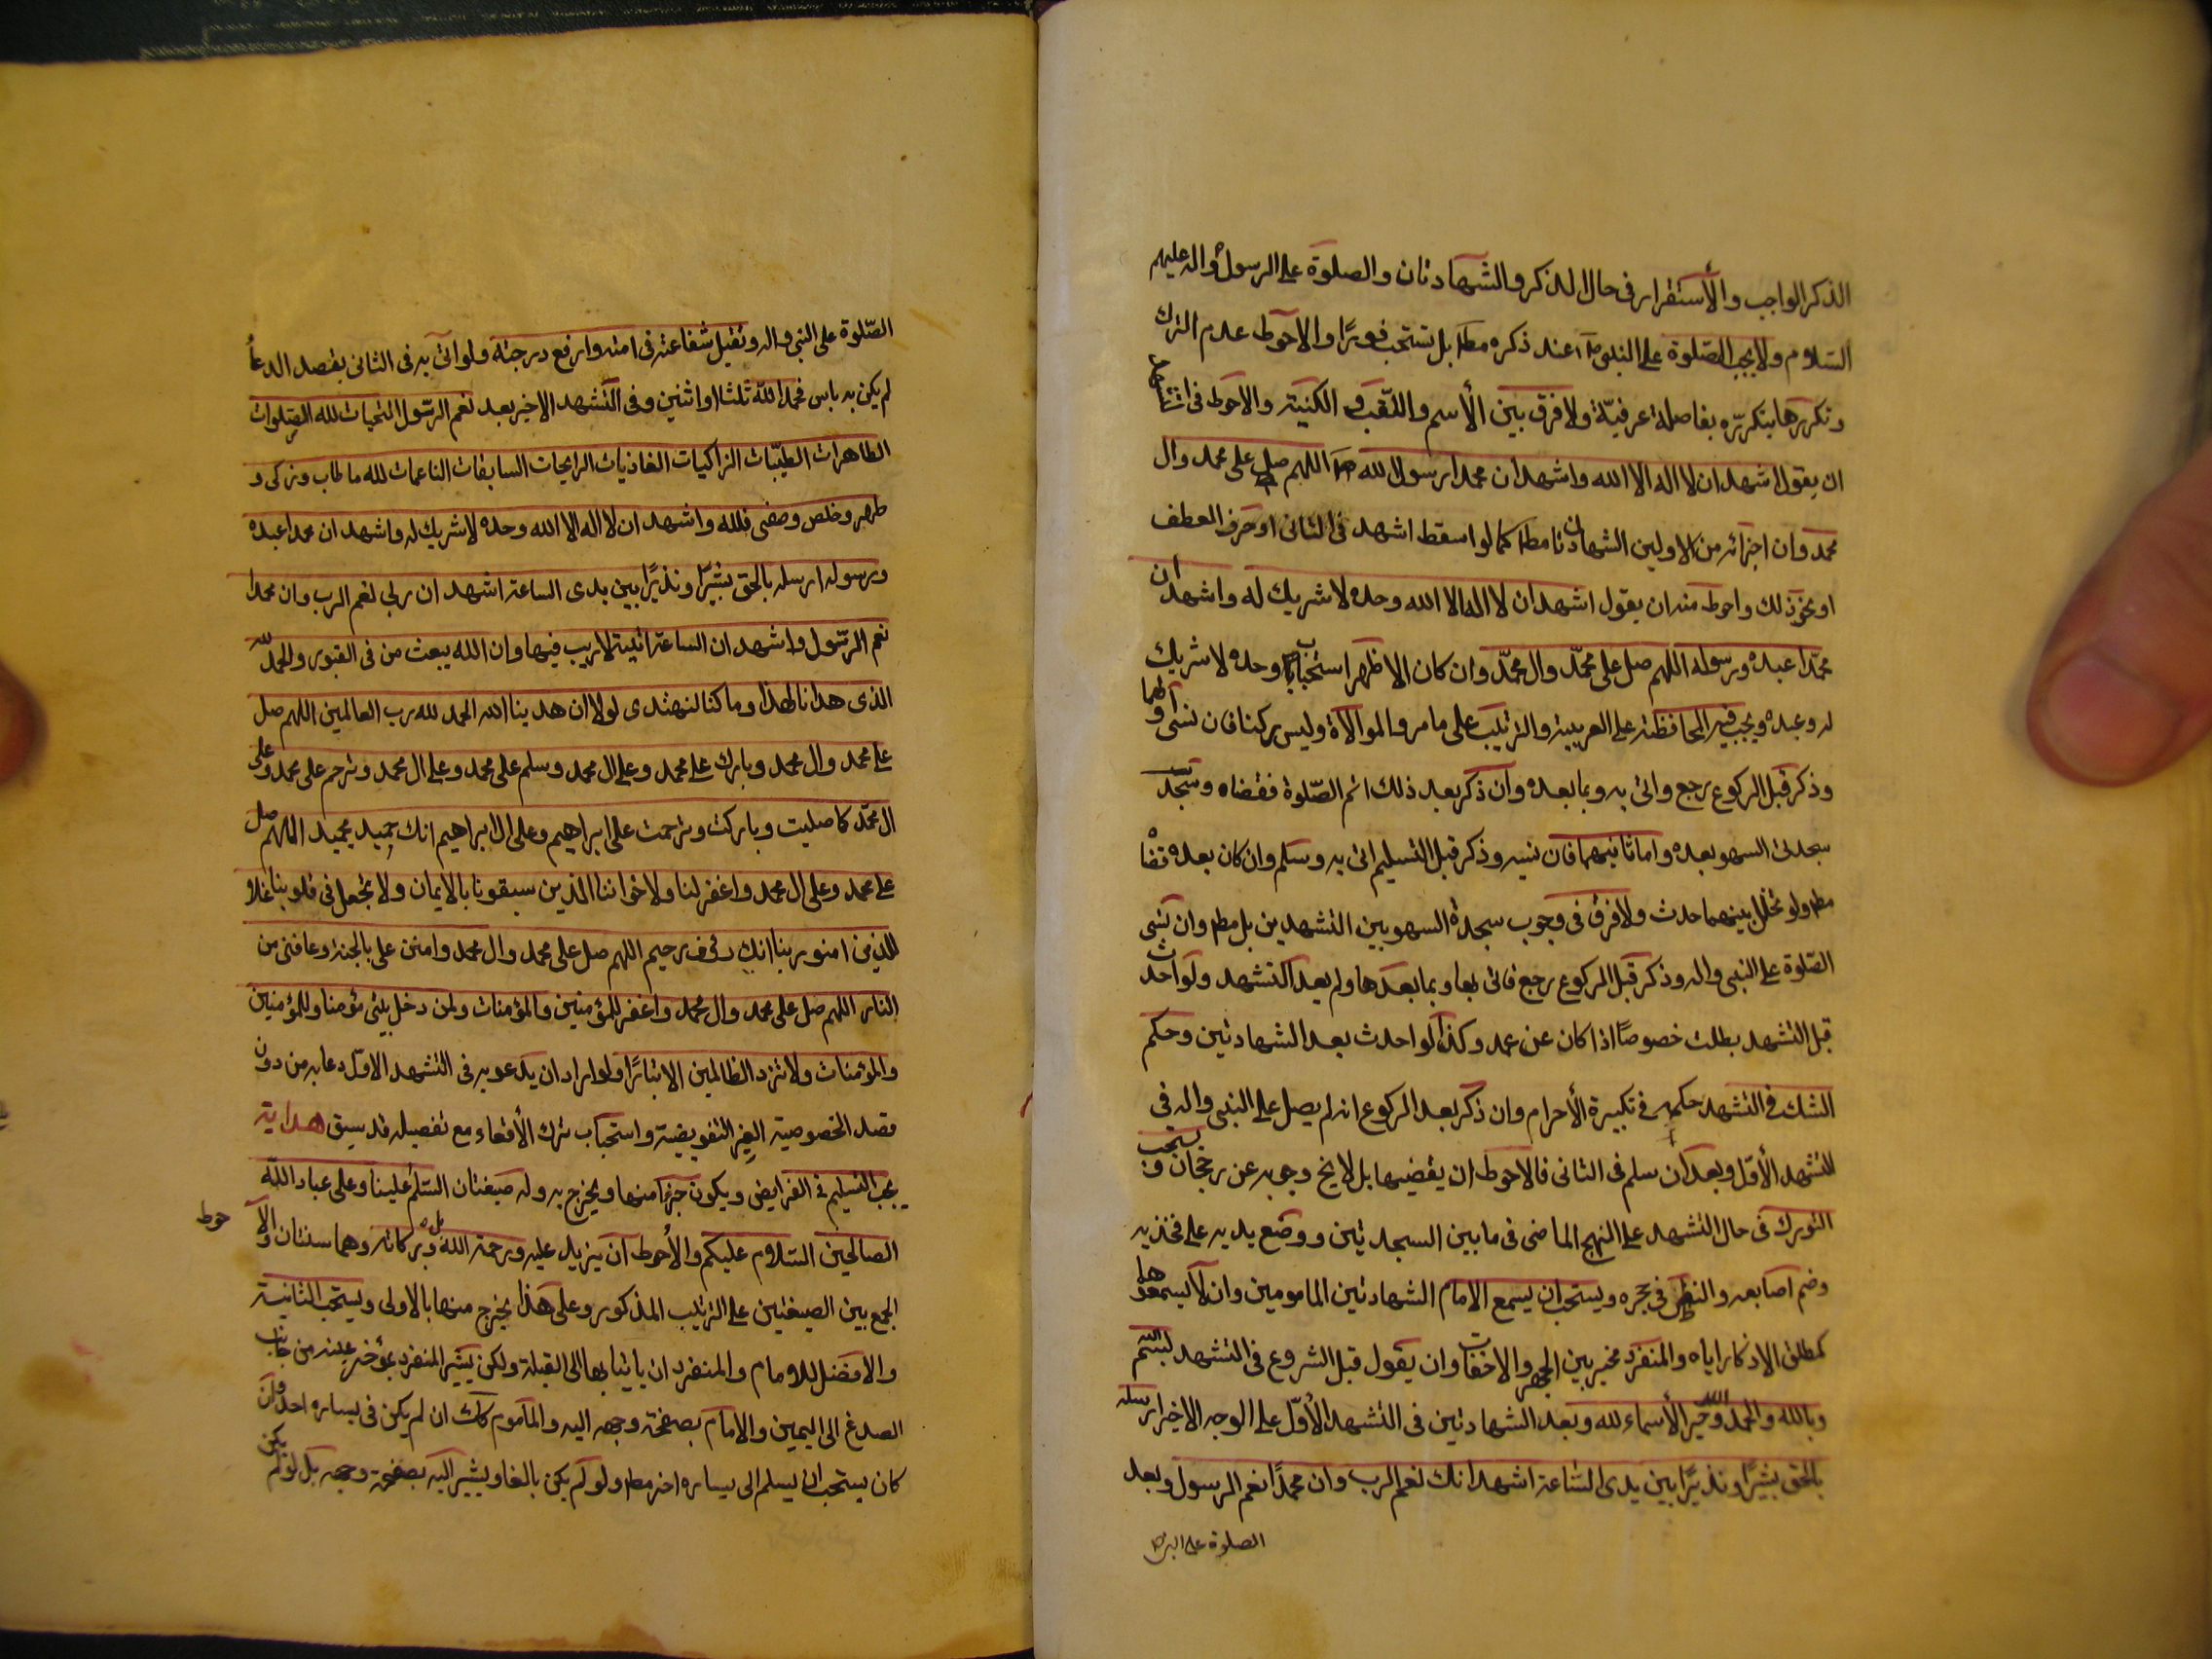 الذكر الواجب والأستقرار فى حال الذكر والشهادتان والصلوة على الرسول واله عليهم
السلام ولا يجب الصلوة على النبى ص عند ذكره مط بل تستحب فورًا والاحوط عدم الترك
وتكررها بتكرره بفاصلة عرفيّة ولا فرق بين الأسم واللّقب و الكنية والاحوط فى
ان يقول اشهد ان لا اله الا الله واشهد ان محمدا رسول الله ص اللهم صل على محمد وال
محمد وان اجزائه من الاولين الشهادتان مط كما لو اسقط اشهد فى الثانى او حرف العطف
او نحو ذلك واحوط منه ان يقول اشهد ان لا اله الا الله وحده لا شريك له واشهد ان
محمّدا عبده ورسوله اللهم صل على محمّد وال محمّد وان كان الاظهر استحباب وحده لا شريك
له وعبده ويجب فيه المحافظة على العربية والترتيب على ما مر والموالاة وليس بركن فان نسى اولهما
وذكر قبل الركوع رجع واتى به وبما بعده وان ذكر بعد ذلك اتم الصّلوة فقضاه وسجد
سجدتى السهو بعده واما ثانيهما فان نسيه وذكر قبل التسليم اتى به وسلم وان كان بعده قضاه
مط ولو تخلل بينهما حدث ولا فرق فى وجوب سجدة السهو بين التشهدين بل مط وان نسى
الصّلوة على النبى واله وذكر قبل الركوع رجع فاتى بها وبما بعدها ولم يعد التشهد ولو احدث
قبل التشهد بطلت خصوصًا اذا كان عن عمد وكذا لو احدث بعد الشهادتين وحكم
الشك فى التشهد حكمه فى تكبيرة الأحرام وان ذكر بعد الركوع انه لم يصل على النبى واله فى
للتشهد الأوّل وبعد ان سلم فى الثانى فالاحوط ان يقضيها بل لا يخ وجوبه عن رجحان و يستحب
التورك فى حال التشهد على النهج الماضى فى ما بين السجدتين ووضع يديه على فخذيه
وضم اصابعه والنظر فى حجره ويستحب ان يسمع الامام الشهادتين المامومين وان لا يسمعوها
كمطلق الاذكار اياه والمنفرد مخير بين الجهر والاخفات وان يقول قبل الشروع فى التشهد بسم الله
وبالله والحمد لله وخير الأسماء لله وبعد الشهادتين فى التشهد الأوّل على الوجه الاخير ارسله
بالحق بشيرًا ونذيرًا بين يدى الساعة اشهد انك نعم الرب وان محمدًا نعم الرسول وبعد
الصلوة على النبى
الصّلوة على النبى واله وتقبل شفاعته فى امته وارفع درجته ولو اتى به فى الثانى بقصد الدعاء
لم يكن به باس فحمد الله ثلثا او اثنين وفى التشهد الاخير بعد نعم الرسول التحيات لله الصلوات
الطاهرات الطيّبات الزاكيات الغاديات الرايحات السابغات الناعمات لله ما طاب وزكى و
طهر وخلص وصفى فلله واشهد ان لا اله الا الله وحده لا شريك له واشهد ان محمدا عبده
ورسوله ارسله بالحق بشيرًا ونذيرًا بين يدى الساعة اشهد ان ربى نعم الرب وان محمدا
نعم الرّسول واشهد ان الساعة اتية لا ريب فيها وان الله يبعث من فى القبور والحمد لله
الذى هدانا لهذا وما كنا لنهتدى لولا ان هدينا الله الحمد لله رب العالمين اللهم صل
على محمد وال محمد وبارك على محمد وعلى ال محمد وسلم على محمد وعلى ال محمد وترحم على محمد وعلى
ال محمّد كما صليت وباركت وترحمت على ابراهيم وعلى ال ابراهيم انك حميد مجيد اللهم صل
على محمد وعلى ال محمد واغفر لنا ولاخواننا الذين سبقونا بالايمان ولا تجعل فى قلوبنا غلا
للذين امنو ربنا انك رؤف رحيم اللهم صل على محمد وال محمد وامنن على بالجنة وعافنى من
النار اللهم صل على محمد وال محمد واغفر للمؤمنين والمؤمنات ولمن دخل بيتى مؤمنا وللمؤمنين
والمؤمنات ولا تزد الظالمين الا تبارًا ولو اراد ان يدعو به فى التشهد الاوّل دعا به من دون
قصد الخصوصية الغير التفويضية واستحباب ترك الأقعاء مع تفصيله قد سبق هداية
يجب التسليم فى الفرايض ويكون جزءًا منها ويخرج به وله صيغتان السّلم علينا وعلى عباد اللّه
الصالحين السّلام عليكم والأحوط ان يزيد عليه ورحمة الله بل وبركاته وهما سنتان والا
حوط
الجمع بين الصيغتين على الترتيب المذكور وعلى هذا يخرج منها بالاولى ويستحب الثانية
والافضل للامام والمنفرد ان ياتيا بها الى القبلة ولكن يشير المنفرد بمؤخر عينه من جانب
الصدغ الى اليمين والامام بصفحة وجهه اليه والماموم كك ان لم يكن فى يساره احد وان
كان يستحب ان يسلم الى يساره اخر مط ولو لم يكن بالغا ويشير اليه بصفحة وجهه بل لو لم يكن